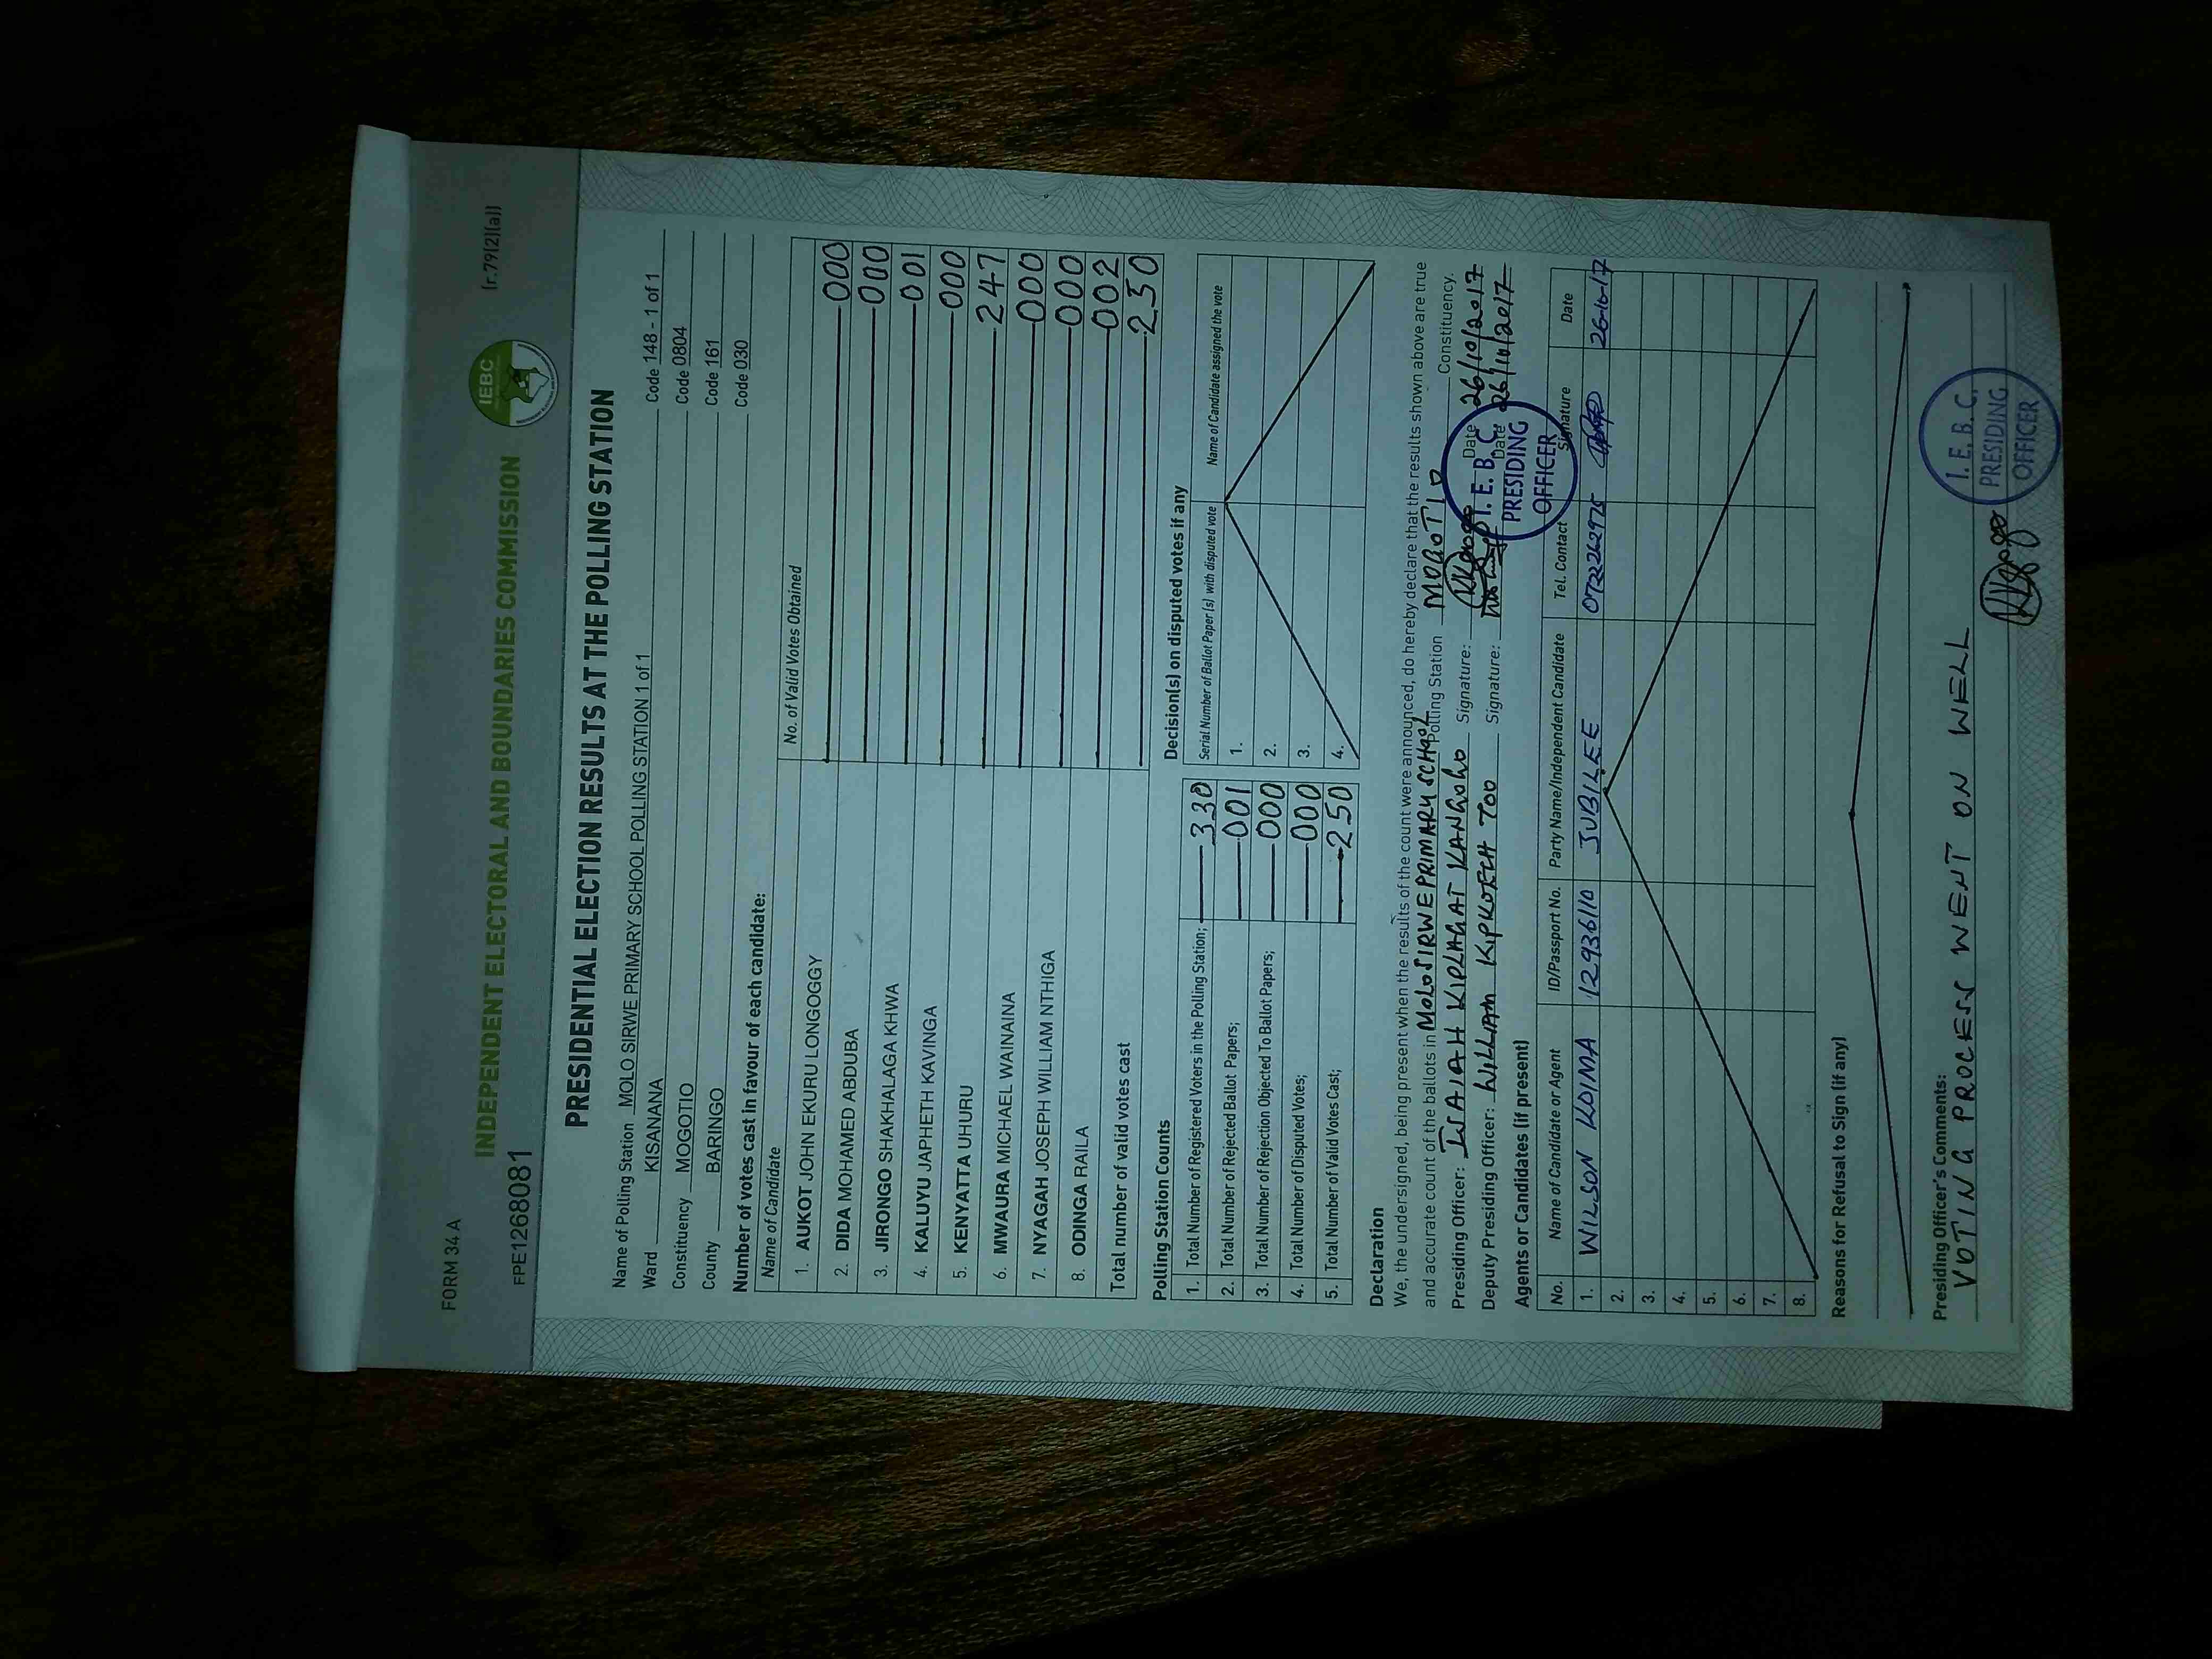 FORM 34 A
INDEPENDENT ELECTORAL AND BOUNDARIES COMMISSION
IEBC
(r.79(2)(a))
FPE1268081
PRESIDENTIAL ELECTION RESULTS AT THE POLLING STATION
Name of Polling Station MOLO SIRWE PRIMARY SCHOOL POLLING STATION 1 of 1 Code 148 - 1 of 1
Ward KISANANA Code 0804
Constituency MOGOTIO Code 161
County BARINGO Code 030
Number of votes cast in favour of each candidate:
Name of Candidate No. of Valid Votes Obtained
1. AUKOT JOHN EKURU LONGOGGY 000
2. DIDA MOHAMED ABDUBA 000
3. JIRONGO SHAKHALAGA KHWA 001
4. KALUYU JAPHETH KAVINGA 000
5. KENYATTA UHURU 247
6. MWAURA MICHAEL WAINAINA 000
7. NYAGAH JOSEPH WILLIAM NTHIGA 000
8. ODINGA RAILA 002
Total number of valid votes cast 250
Polling Station Counts
1. Total Number of Registered Voters in the Polling Station; 330
2. Total Number of Rejected Ballot Papers; 001
3. Total Number of Rejection Objected To Ballot Papers; 000
4. Total Number of Disputed Votes; 000
5. Total Number of Valid Votes Cast; 250
Decision(s) on disputed votes if any
Serial Number of Ballot Paper(s) with disputed vote Name of Candidate assigned the vote
1.
2.
3.
4.
Declaration
We, the undersigned, being present when the results of the count were announced, do hereby declare that the results shown above are true
and accurate count of the ballots in MOLO SIRWE PRIMARY SCHOOL Polling Station MOGOTIO Constituency.
Presiding Officer: ISAIAH KIPLAGAT KANGOGO Signature: Date 26/10/2017
Deputy Presiding Officer: WILLIAM KIPKOECH TOO Signature: Date 26/10/2017
I. E. B. C.
PRESIDING
OFFICER
Agents or Candidates (if present)
No. Name of Candidate or Agent ID/Passport No. Party Name/Independent Candidate Tel. Contact Signature Date
1. WILSON KOIMA 12936110 JUBILEE 0722262975 26-10-17
2.
3.
4.
5.
6.
7.
8.
Reasons for Refusal to Sign (if any)
Presiding Officer's Comments:
VOTING PROCESS WENT ON WELL
I. E. B. C.
PRESIDING
OFFICER